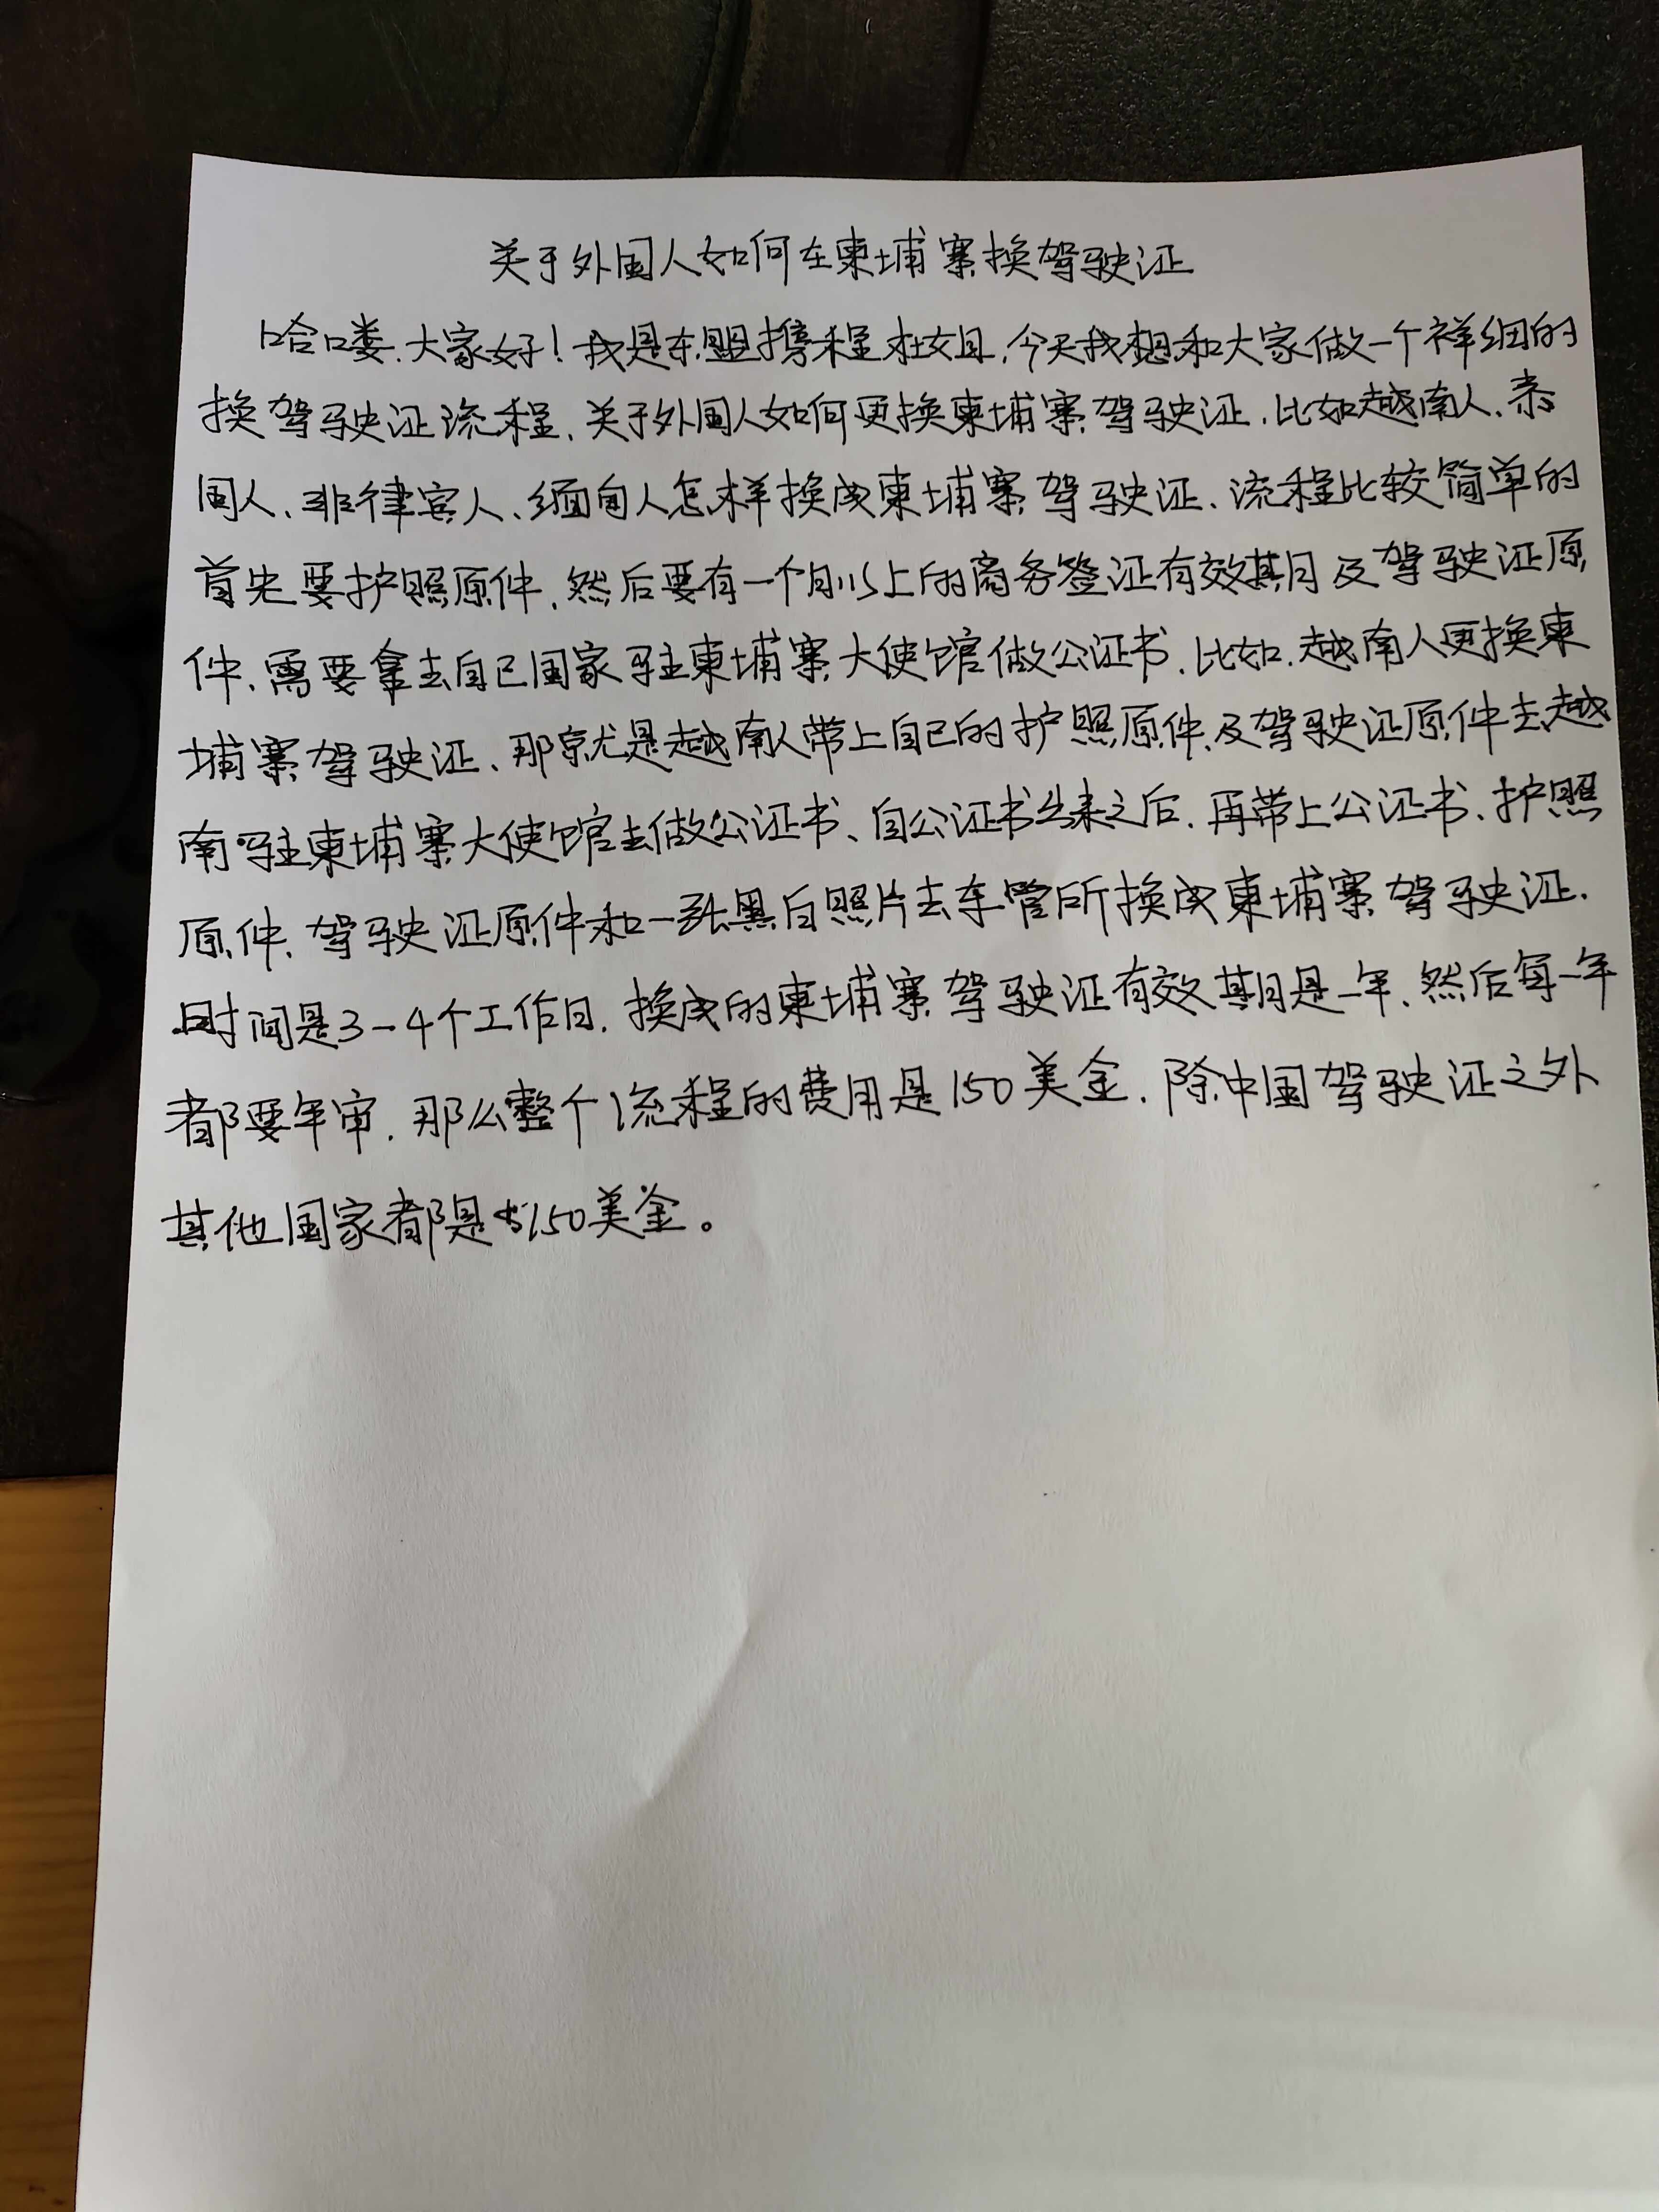 关于外国人如何在柬埔寨换驾驶证
哈喽.大家好!我是东盟携程杜姐,今天我想和大家做一个祥细的
换驾驶证流程、关于外国人如何更换柬埔寨驾驶证.比如越南人、泰
国人、非律宾人、缅甸人怎样换成柬埔寨驾驶证.流程比较简单的
首先要护照原件.然后要有一个月以上的商务签证有效期及驾驶证原
件、需要拿去自己国家驻柬埔寨大使馆做公证书.比如.越南人更换柬
埔寨驾驶证、那就是越南人带上自己的护照原件及驾驶证原件去越
南驻柬埔寨大使馆去做公证书、自公证书出来之后.再带上公证书、护照
原件、驾驶证原件和一张黑白照片去车管所换成柬埔寨驾驶证.
时间是3-4个工作日.换成的柬埔寨驾驶证有效期是一年、然后每一年
都要年审.那么整个流程的费用是150美金.除中国驾驶证之外
其他国家都是$150美金。